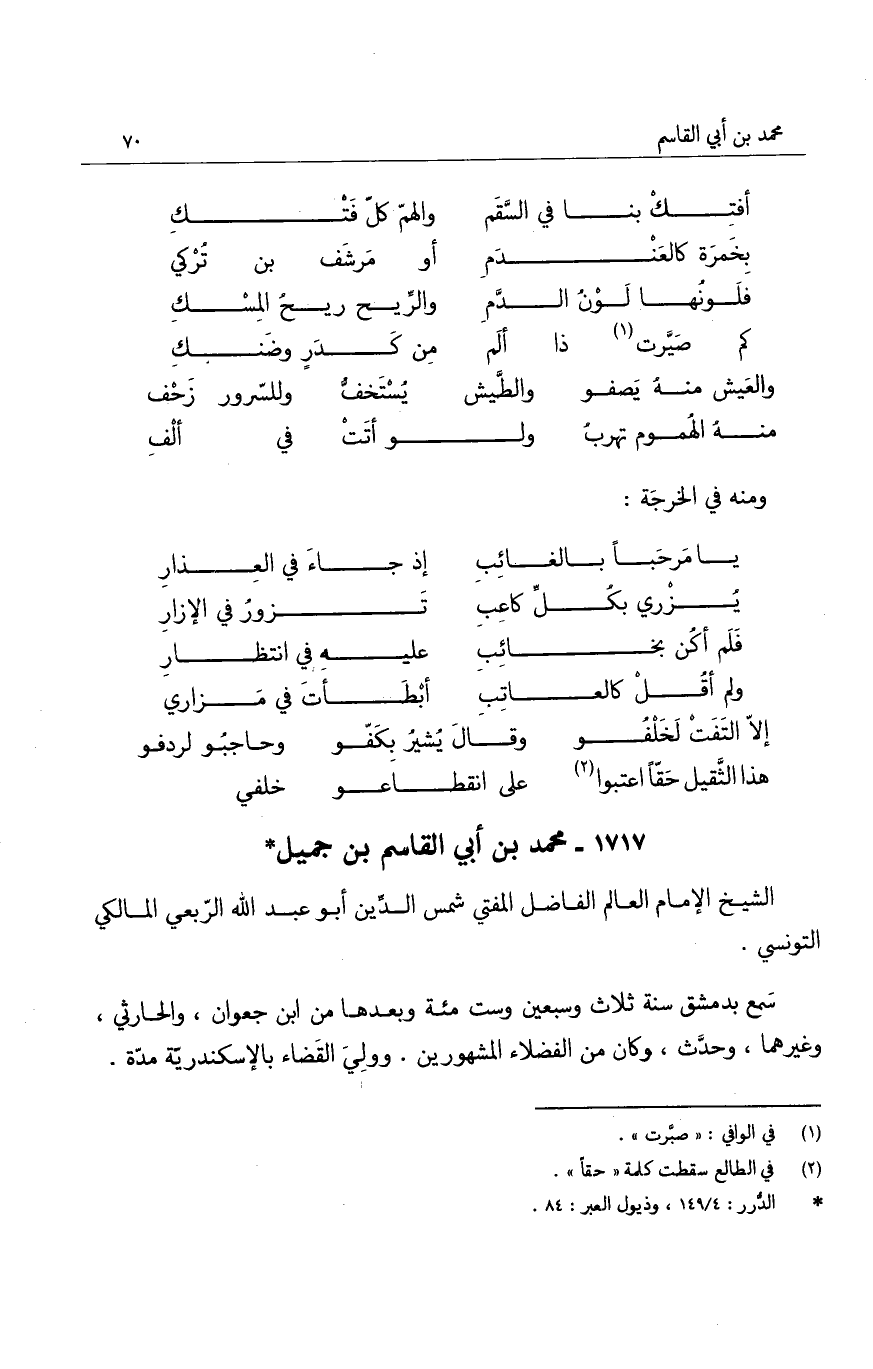 محمد بن أبي القاسم ٧٠
أفتِـك بنـا في السَّقَم والهمّ كلّ فَتْـكِ
بِخَمرَة كالعَنْـدَمِ أو مَرشَف بن تُرْكي
فلَـونُهـا لَـوْنُ الـدَّمِ والرِّيـح ريـحُ المِسْـكِ
كم صَيَّرت(١) ذا ألَم مِن كَـدَرٍ وضَنـكِ
والعَيش منـهُ يَصفـو والطَّيش يُسْتَخفُّ وللسّرور زَحْف
منـهُ الهُمـوم تهربُ ولـو أتَتْ في ألْفِ
ومنه في الخرجَة :
يـا مَرحَبـاً بـالغـائِبِ إذ جـاءَ في العِـذارِ
يُـزْري بكُـلِّ كاعِبِ تَـزورُ في الإزارِ
فَلَم أكُن بخـائبِ عليـهِ في انتظـارِ
ولم أقُـلْ كالعـاتِبِ أبْطَـأتَ في مَـزاري
إلاّ التَفَتْ لَخَلْفُـو وقـالَ يُشيرُ بِكَفّـو وحـاجبُـو لردفـو
هذا الثَّقيل حَقّاً اعتبوا(٢) على انقطـاعـو خلفي
١٧١٧ ـ محمد بن أبي القاسم بن جميل*
الشيـخ الإمـام العـالم الفـاضـل المفتي شمس الـدِّين أبـو عبـد الله الرّبعي المـالكي
التونسي .
سَمع بدمشق سنة ثلاث وسبعين وست مئـة وبعـدهـا من ابن جعوان ، والحـارثي ،
وغيرهما ، وحدَّث ، وكان من الفضلاء المشهورين . ووليَ القَضاء بالإسكندريّة مدّة .
(١) في الوافي : « صبَّرت » .
(٢) في الطالع سقطت كلمة « حقاً » .
* الدُّرر : ١٤٩/٤ ، وذيول العبر : ٨٤ .